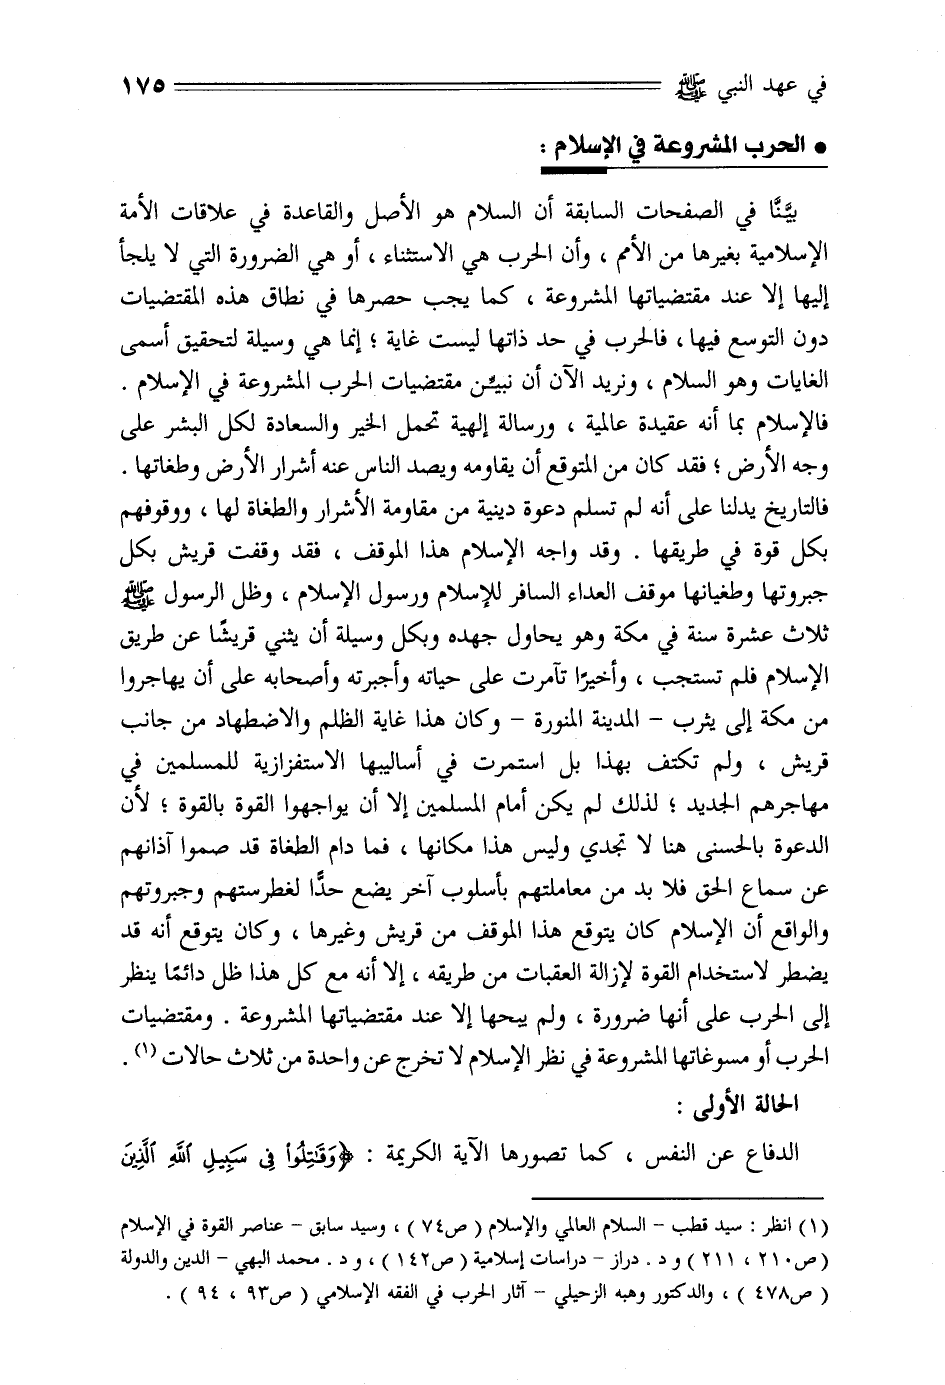 في عهد النبي ﷺ ١٧٥
• الحرب المشروعة في الإسلام :
بيَّنَّا في الصفحات السابقة أن السلام هو الأصل والقاعدة في علاقات الأمة
الإسلامية بغيرها من الأمم ، وأن الحرب هي الاستثناء ، أو هي الضرورة التي لا يلجأ
إليها إلا عند مقتضياتها المشروعة ، كما يجب حصرها في نطاق هذه المقتضيات
دون التوسع فيها ، فالحرب في حد ذاتها ليست غاية ؛ إنما هي وسيلة لتحقيق أسمى
الغايات وهو السلام ، ونريد الآن أن نبيـِّن مقتضيات الحرب المشروعة في الإسلام .
فالإسلام بما أنه عقيدة عالمية ، ورسالة إلهية تحمل الخير والسعادة لكل البشر على
وجه الأرض ؛ فقد كان من المتوقع أن يقاومه ويصد الناس عنه أشرار الأرض وطغاتها .
فالتاريخ يدلنا على أنه لم تسلم دعوة دينية من مقاومة الأشرار والطغاة لها ، ووقوفهم
بكل قوة في طريقها . وقد واجه الإسلام هذا الموقف ، فقد وقفت قريش بكل
جبروتها وطغيانها موقف العداء السافر للإسلام ورسول الإسلام ، وظل الرسول ﷺ
ثلاث عشرة سنة في مكة وهو يحاول جهده وبكل وسيلة أن يثني قريشًا عن طريق
الإسلام فلم تستجب ، وأخيرًا تآمرت على حياته وأجبرته وأصحابه على أن يهاجروا
من مكة إلى يثرب – المدينة المنورة – وكان هذا غاية الظلم والاضطهاد من جانب
قريش ، ولم تكتف بهذا بل استمرت في أساليبها الاستفزازية للمسلمين في
مهاجرهم الجديد ؛ لذلك لم يكن أمام المسلمين إلا أن يواجهوا القوة بالقوة ؛ لأن
الدعوة بالحسنى هنا لا تجدي وليس هذا مكانها ، فما دام الطغاة قد صموا آذانهم
عن سماع الحق فلا بد من معاملتهم بأسلوب آخر يضع حدًّا لغطرستهم وجبروتهم
والواقع أن الإسلام كان يتوقع هذا الموقف من قريش وغيرها ، وكان يتوقع أنه قد
يضطر لاستخدام القوة لإزالة العقبات من طريقه ، إلا أنه مع كل هذا ظل دائمًا ينظر
إلى الحرب على أنها ضرورة ، ولم يبحها إلا عند مقتضياتها المشروعة . ومقتضيات
الحرب أو مسوغاتها المشروعة في نظر الإسلام لا تخرج عن واحدة من ثلاث حالات (١) .
الحالة الأولى :
الدفاع عن النفس ، كما تصورها الآية الكريمة : ﴿وَقَٰتِلُوا۟ فِى سَبِيلِ ٱللَّهِ ٱلَّذِينَ
(١) انظر : سيد قطب – السلام العالمي والإسلام ( ص٧٤ ) ، وسيد سابق – عناصر القوة في الإسلام
( ص٢١٠ ، ٢١١ ) و د . دراز – دراسات إسلامية ( ص١٤٢ ) ، و د . محمد البهي – الدين والدولة
( ص٤٧٨ ) ، والدكتور وهبه الزحيلي – آثار الحرب في الفقه الإسلامي ( ص٩٣ ، ٩٤ ) .